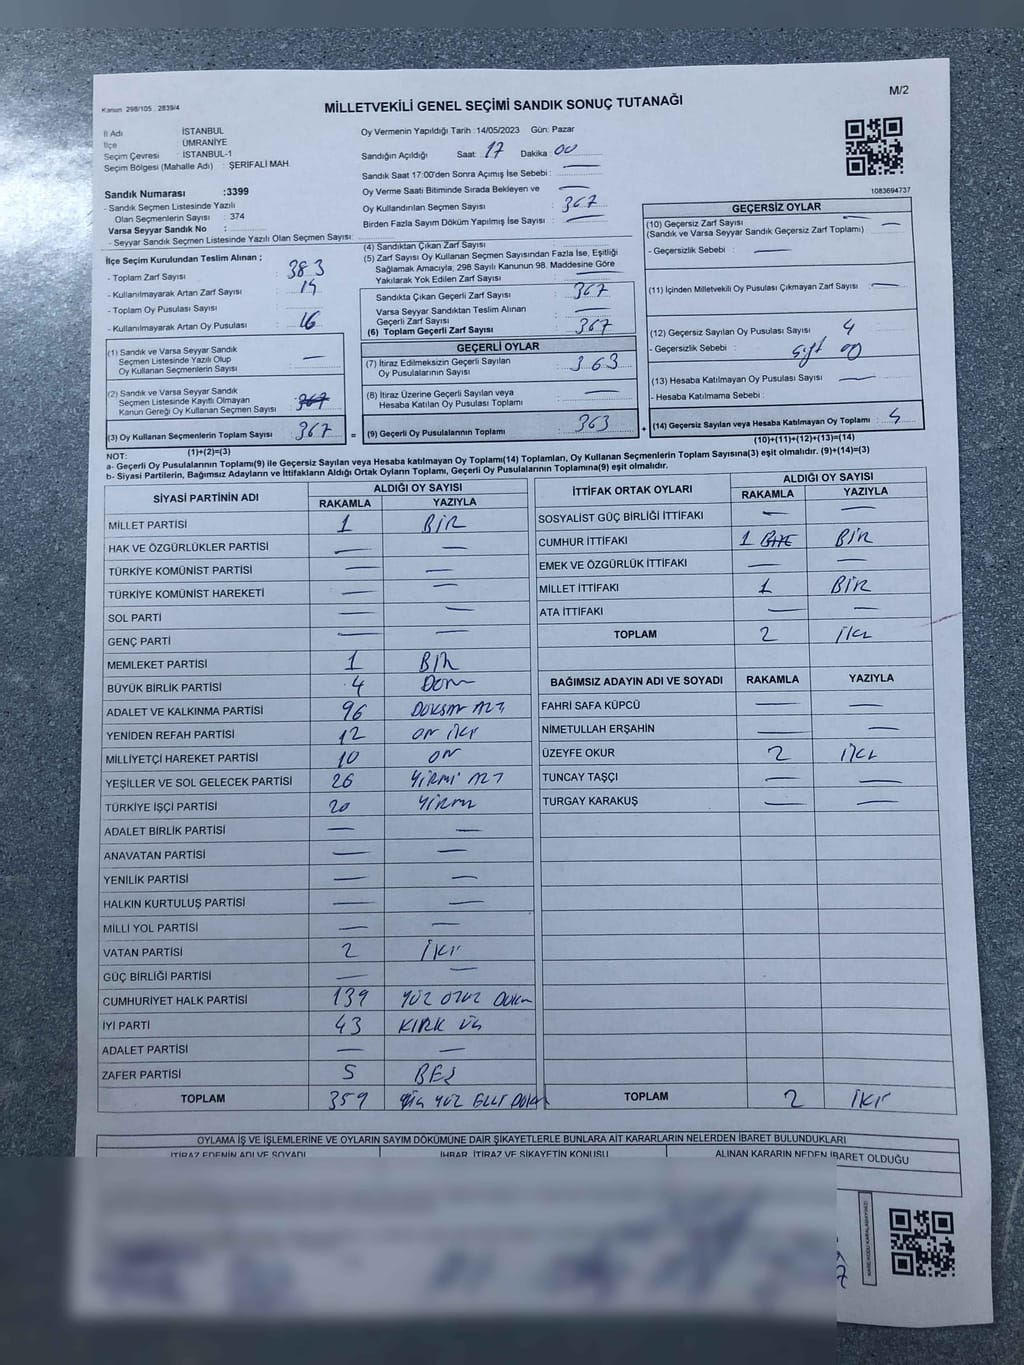 Kanun 298/105 . 2839/4
M/2
MİLLETVEKİLİ GENEL SEÇİMİ SANDIK SONUÇ TUTANAĞI
İl Adı : İSTANBUL
İlçe : ÜMRANİYE
Seçim Çevresi : İSTANBUL-1
Seçim Bölgesi (Mahalle Adı) : ŞERİFALİ MAH.
Sandık Numarası :3399
- Sandık Seçmen Listesinde Yazılı
Olan Seçmenlerin Sayısı : 374
Varsa Seyyar Sandık No :
- Seyyar Sandık Seçmen Listesinde Yazılı Olan Seçmen Sayısı:
Oy Vermenin Yapıldığı Tarih : 14/05/2023 Gün: Pazar
Sandığın Açıldığı Saat: 17 Dakika 00
Sandık Saat 17:00'den Sonra Açımış İse Sebebi : —
Oy Verme Saati Bitiminde Sırada Bekleyen ve
Oy Kullandırılan Seçmen Sayısı : 367
Birden Fazla Sayım Döküm Yapılmış İse Sayısı : —
1083694737
İlçe Seçim Kurulundan Teslim Alınan :
- Toplam Zarf Sayısı : 383
- Kullanılmayarak Artan Zarf Sayısı : 19
- Toplam Oy Pusulası Sayısı :
- Kullanılmayarak Artan Oy Pusulası : 16
(1) Sandık ve Varsa Seyyar Sandık
Seçmen Listesinde Yazılı Olup
Oy Kullanan Seçmenlerin Sayısı : —
(2) Sandık ve Varsa Seyyar Sandık
Seçmen Listesinde Kayıtlı Olmayan
Kanun Gereği Oy Kullanan Seçmen Sayısı : 367
(3) Oy Kullanan Seçmenlerin Toplam Sayısı : 367
(4) Sandıktan Çıkan Zarf Sayısı :
(5) Zarf Sayısı Oy Kullanan Seçmen Sayısından Fazla İse, Eşitliği
Sağlamak Amacıyla, 298 Sayılı Kanunun 98. Maddesine Göre
Yakılarak Yok Edilen Zarf Sayısı : —
Sandıkta Çıkan Geçerli Zarf Sayısı : 367
Varsa Seyyar Sandıktan Teslim Alınan
Geçerli Zarf Sayısı : —
(6) Toplam Geçerli Zarf Sayısı : 367
GEÇERLİ OYLAR
(7) İtiraz Edilmeksizin Geçerli Sayılan
Oy Pusulalarının Sayısı : 363
(8) İtiraz Üzerine Geçerli Sayılan veya
Hesaba Katılan Oy Pusulası Toplamı : —
= (9) Geçerli Oy Pusulalarının Toplamı : 363
GEÇERSİZ OYLAR
(10) Geçersiz Zarf Sayısı : —
(Sandık ve Varsa Seyyar Sandık Geçersiz Zarf Toplamı)
- Geçersizlik Sebebi : —
(11) İçinden Milletvekili Oy Pusulası Çıkmayan Zarf Sayısı : —
(12) Geçersiz Sayılan Oy Pusulası Sayısı : 4
- Geçersizlik Sebebi : Çift oy
(13) Hesaba Katılmayan Oy Pusulası Sayısı : —
- Hesaba Katılmama Sebebi :
+ (14) Geçersiz Sayılan veya Hesaba Katılmayan Oy Toplamı : 4
NOT: (1)+(2)=(3)
(10)+(11)+(12)+(13)=(14)
a- Geçerli Oy Pusulalarının Toplamı(9) ile Geçersiz Sayılan veya Hesaba katılmayan Oy Toplamı(14) Toplamları, Oy Kullanan Seçmenlerin Toplam Sayısına(3) eşit olmalıdır. (9)+(14)=(3)
b- Siyasi Partilerin, Bağımsız Adayların ve İttifakların Aldığı Ortak Oyların Toplamı, Geçerli Oy Pusulalarının Toplamına(9) eşit olmalıdır.
SİYASİ PARTİNİN ADI ALDIĞI OY SAYISI
RAKAMLA YAZIYLA
MİLLET PARTİSİ 1 BİR
HAK VE ÖZGÜRLÜKLER PARTİSİ — —
TÜRKİYE KOMÜNİST PARTİSİ — —
TÜRKİYE KOMÜNİST HAREKETİ — —
SOL PARTİ — —
GENÇ PARTİ — —
MEMLEKET PARTİSİ 1 BİR
BÜYÜK BİRLİK PARTİSİ 4 Dört
ADALET VE KALKINMA PARTİSİ 96 DOKSAN ALTI
YENİDEN REFAH PARTİSİ 12 ON İKİ
MİLLİYETÇİ HAREKET PARTİSİ 10 ON
YEŞİLLER VE SOL GELECEK PARTİSİ 26 YİRMİ ALTI
TÜRKİYE İŞÇİ PARTİSİ 20 YİRMİ
ADALET BİRLİK PARTİSİ — —
ANAVATAN PARTİSİ — —
YENİLİK PARTİSİ — —
HALKIN KURTULUŞ PARTİSİ — —
MİLLİ YOL PARTİSİ — —
VATAN PARTİSİ 2 İKİ
GÜÇ BİRLİĞİ PARTİSİ — —
CUMHURİYET HALK PARTİSİ 139 YÜZ OTUZ DOKUZ
İYİ PARTİ 43 KIRK ÜÇ
ADALET PARTİSİ — —
ZAFER PARTİSİ 5 BEŞ
TOPLAM 359 ÜÇ YÜZ ELLİ DOKUZ
İTTİFAK ORTAK OYLARI ALDIĞI OY SAYISI
RAKAMLA YAZIYLA
SOSYALİST GÜÇ BİRLİĞİ İTTİFAKI — —
CUMHUR İTTİFAKI 1 BİR BİR
EMEK VE ÖZGÜRLÜK İTTİFAKI — —
MİLLET İTTİFAKI 1 BİR
ATA İTTİFAKI — —
TOPLAM 2 İKİ
BAĞIMSIZ ADAYIN ADI VE SOYADI RAKAMLA YAZIYLA
FAHRİ SAFA KÜPCÜ — —
NİMETULLAH ERŞAHİN — —
ÜZEYFE OKUR 2 İKİ
TUNCAY TAŞÇI — —
TURGAY KARAKUŞ — —
TOPLAM 2 İKİ
OYLAMA İŞ VE İŞLEMLERİNE VE OYLARIN SAYIM DÖKÜMÜNE DAİR ŞİKAYETLERLE BUNLARA AİT KARARLARIN NELERDEN İBARET BULUNDUKLARI
İTİRAZ EDENİN ADI VE SOYADI İHBAR, İTİRAZ VE ŞİKAYETİN KONUSU ALINAN KARARIN NEDEN İBARET OLDUĞU